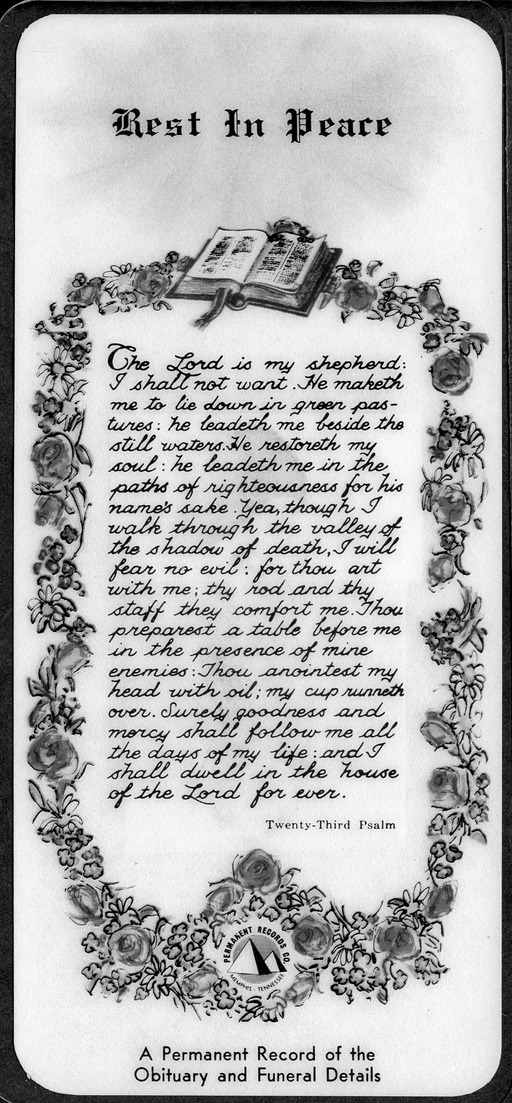 Rest In Peace
The Lord is my shepherd:
I shall not want. He maketh
me to lie down in green pas-
tures: he leadeth me beside the
still waters. He restoreth my
soul: he leadeth me in the
paths of righteousness for his
name's sake. Yea, though I
walk through the valley of
the shadow of death, I will
fear no evil: for thou art
with me; thy rod and thy
staff they comfort me. Thou
preparest a table before me
in the presence of mine
enemies: Thou anointest my
head with oil; my cup runneth
over. Surely goodness and
mercy shall follow me all
the days of my life: and I
shall dwell in the house
of the Lord for ever.
Twenty-Third Psalm
PERMANENT RECORDS CO.
MEMPHIS - TENNESSEE
A Permanent Record of the
Obituary and Funeral Details